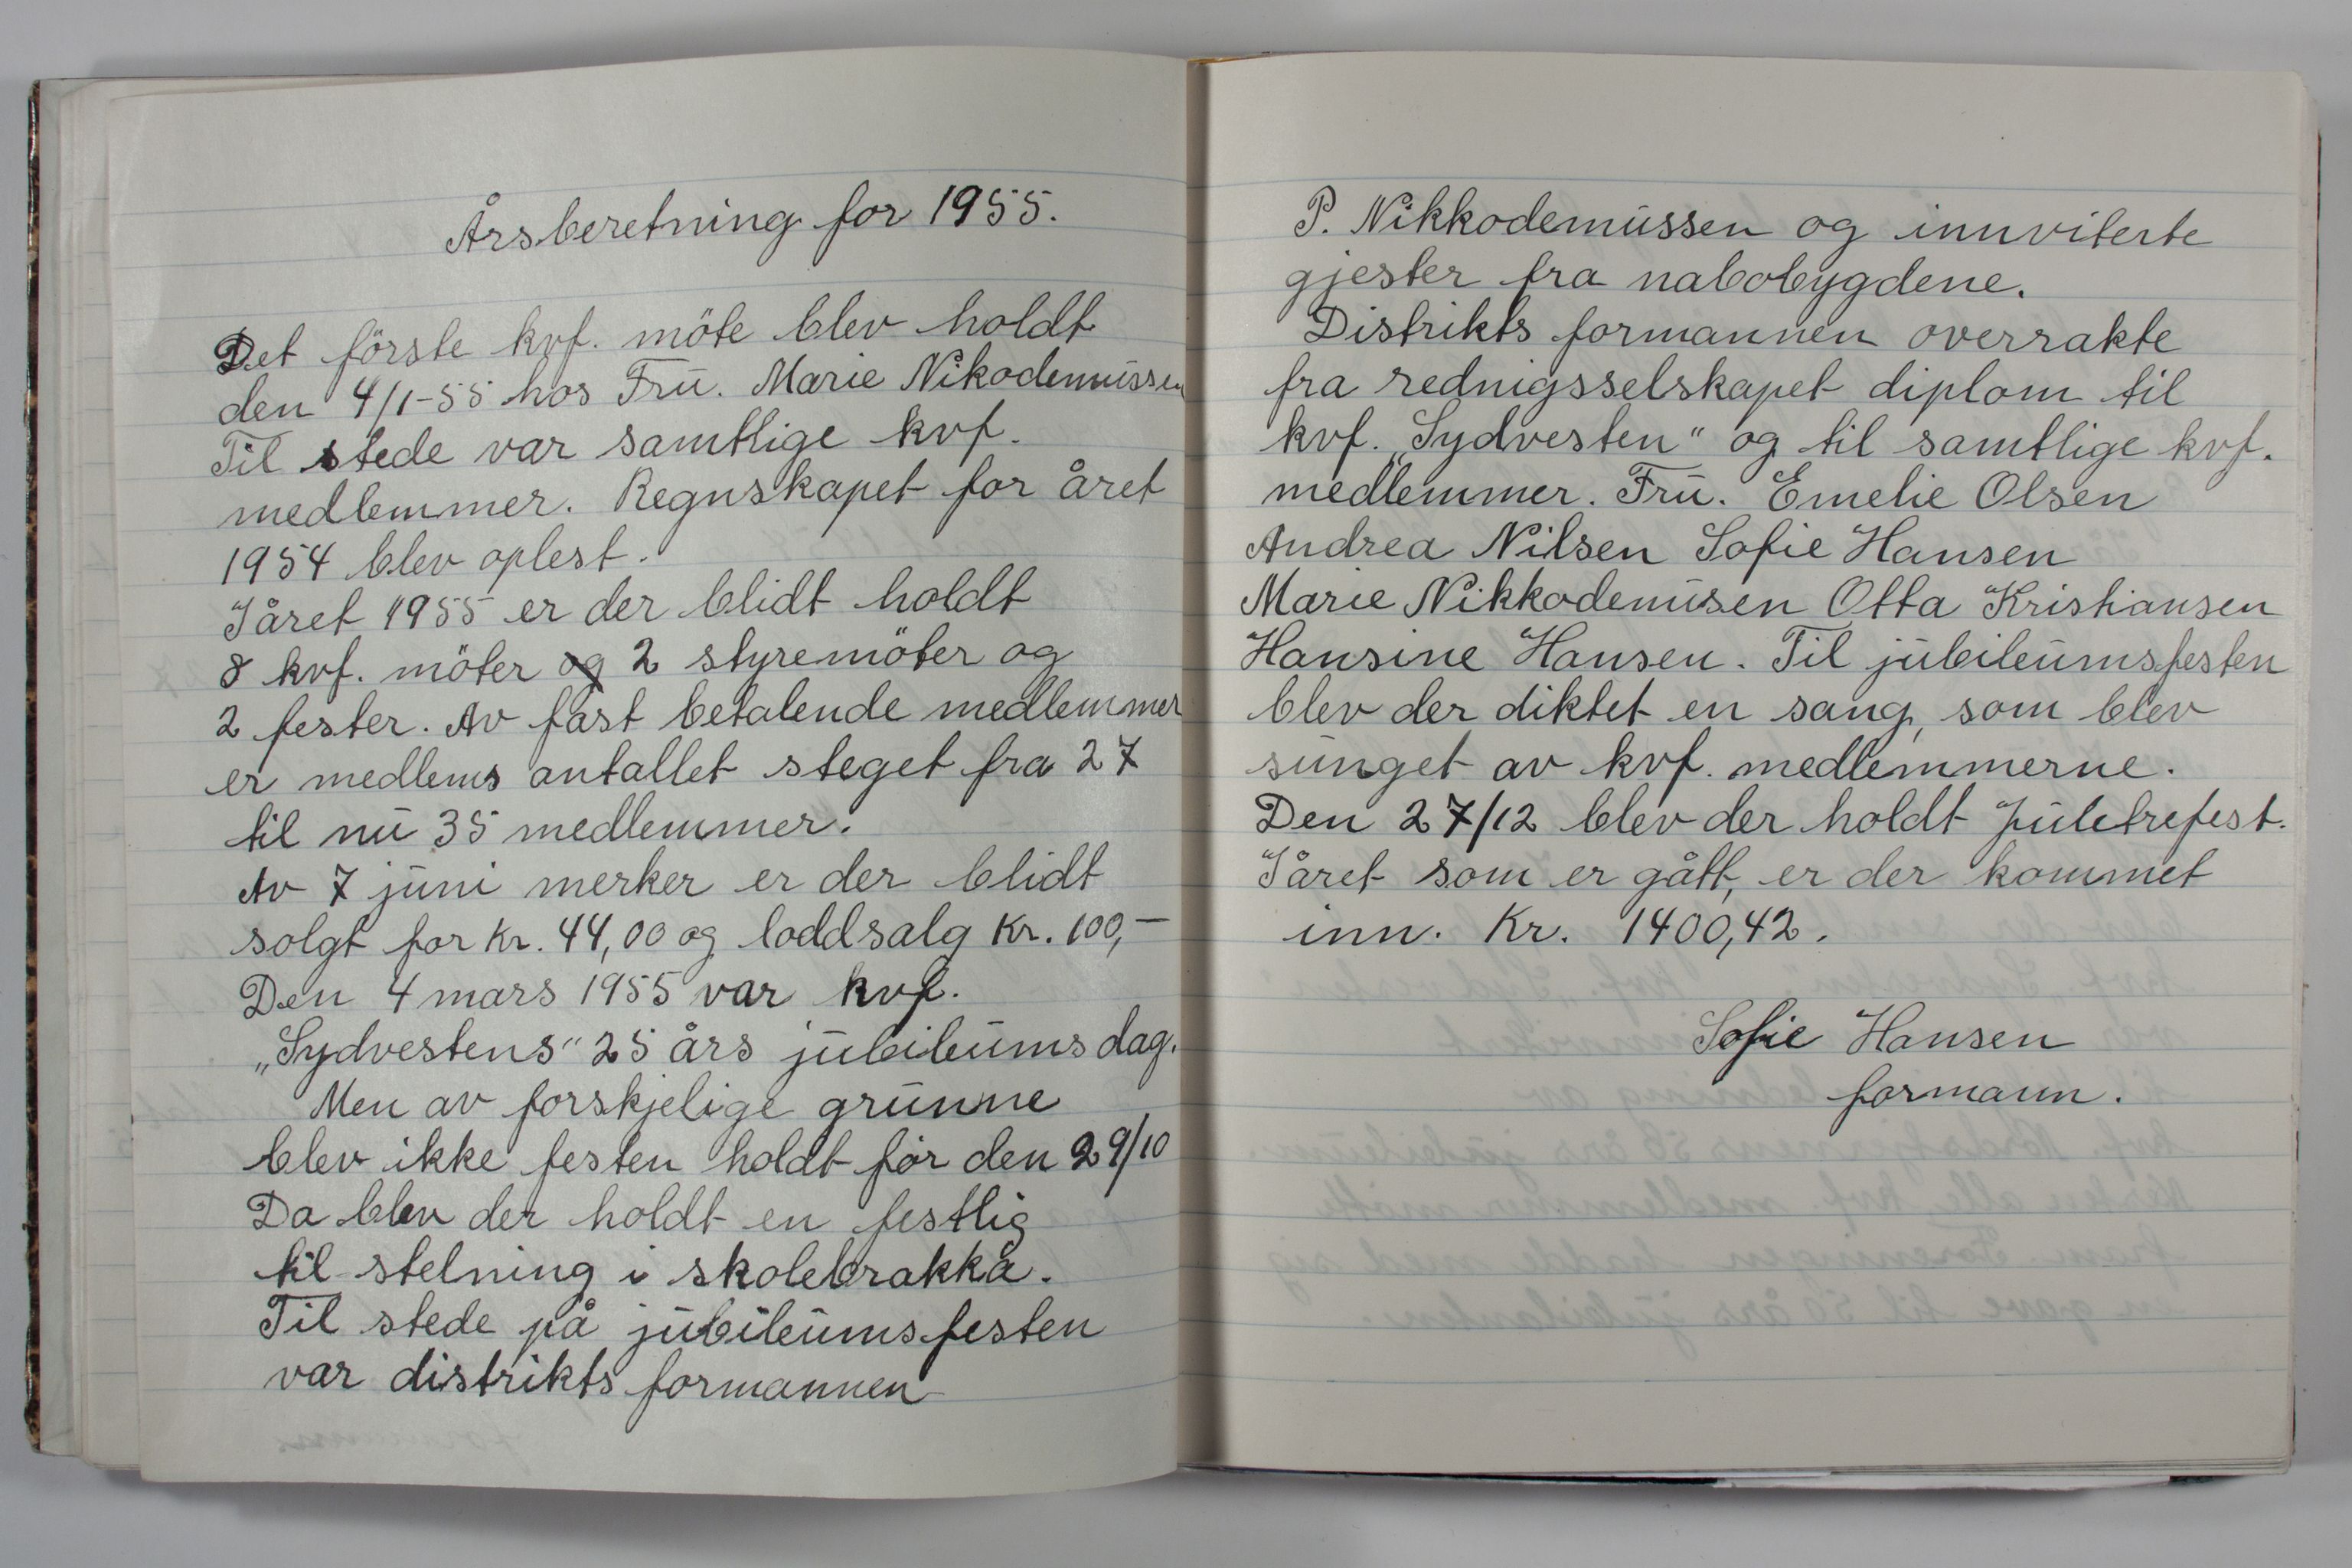 Årsberetning for 1955.
Det förste kvf. möte blev holdt
den 4/1-55 hos Frū. Marie Nikodemüssen
Til stede var samtlige kvf.
medlemmer. Regnskapet for året
1954 blev oplest.
I året 1955 er der blidt holdt
8 kvf. möter og 2 styremöter og
2 fester. Av fast betalende medlemmer
er medlems antallet steget fra 27
til nū 35 medlemmer.
Av 7 jūni merker er der blidt
solgt for Kr. 44,00 og loddsalg Kr. 100,-
Den 4 mars 1955 var kvf.
„Sydvestens" 25 års jūbileūms dag.
Men av forskjelige grūnne
blev ikke festen holdt för den 29/10
Da blev der holdt en festlig
til stelning i skolebrakka.
Til stede på jūbileūms festen
var distrikts formannen
P. Nikkodemūssen og innviterte
gjester fra nabobygdene.
Distrikts formannen overrakte
fra rednigsselskapet diplom til
kvf. „Sydvesten" og til samtlige kvf.
medlemmer. Frū. Emelie Olsen
Andrea Nilsen Sofie Hansen
Marie Nikkodemūsen Otta Kristiansen
Hansine Hansen. Til jūbileūmsfesten
blev der diktet en sang, som blev
sūnget av kvf. medlemmerne.
Den 27/12 blev der holdt Jūletrefest.
I året som er gått, er der kommet
inn. Kr. 1400,42.
Sofie Hansen
formann.